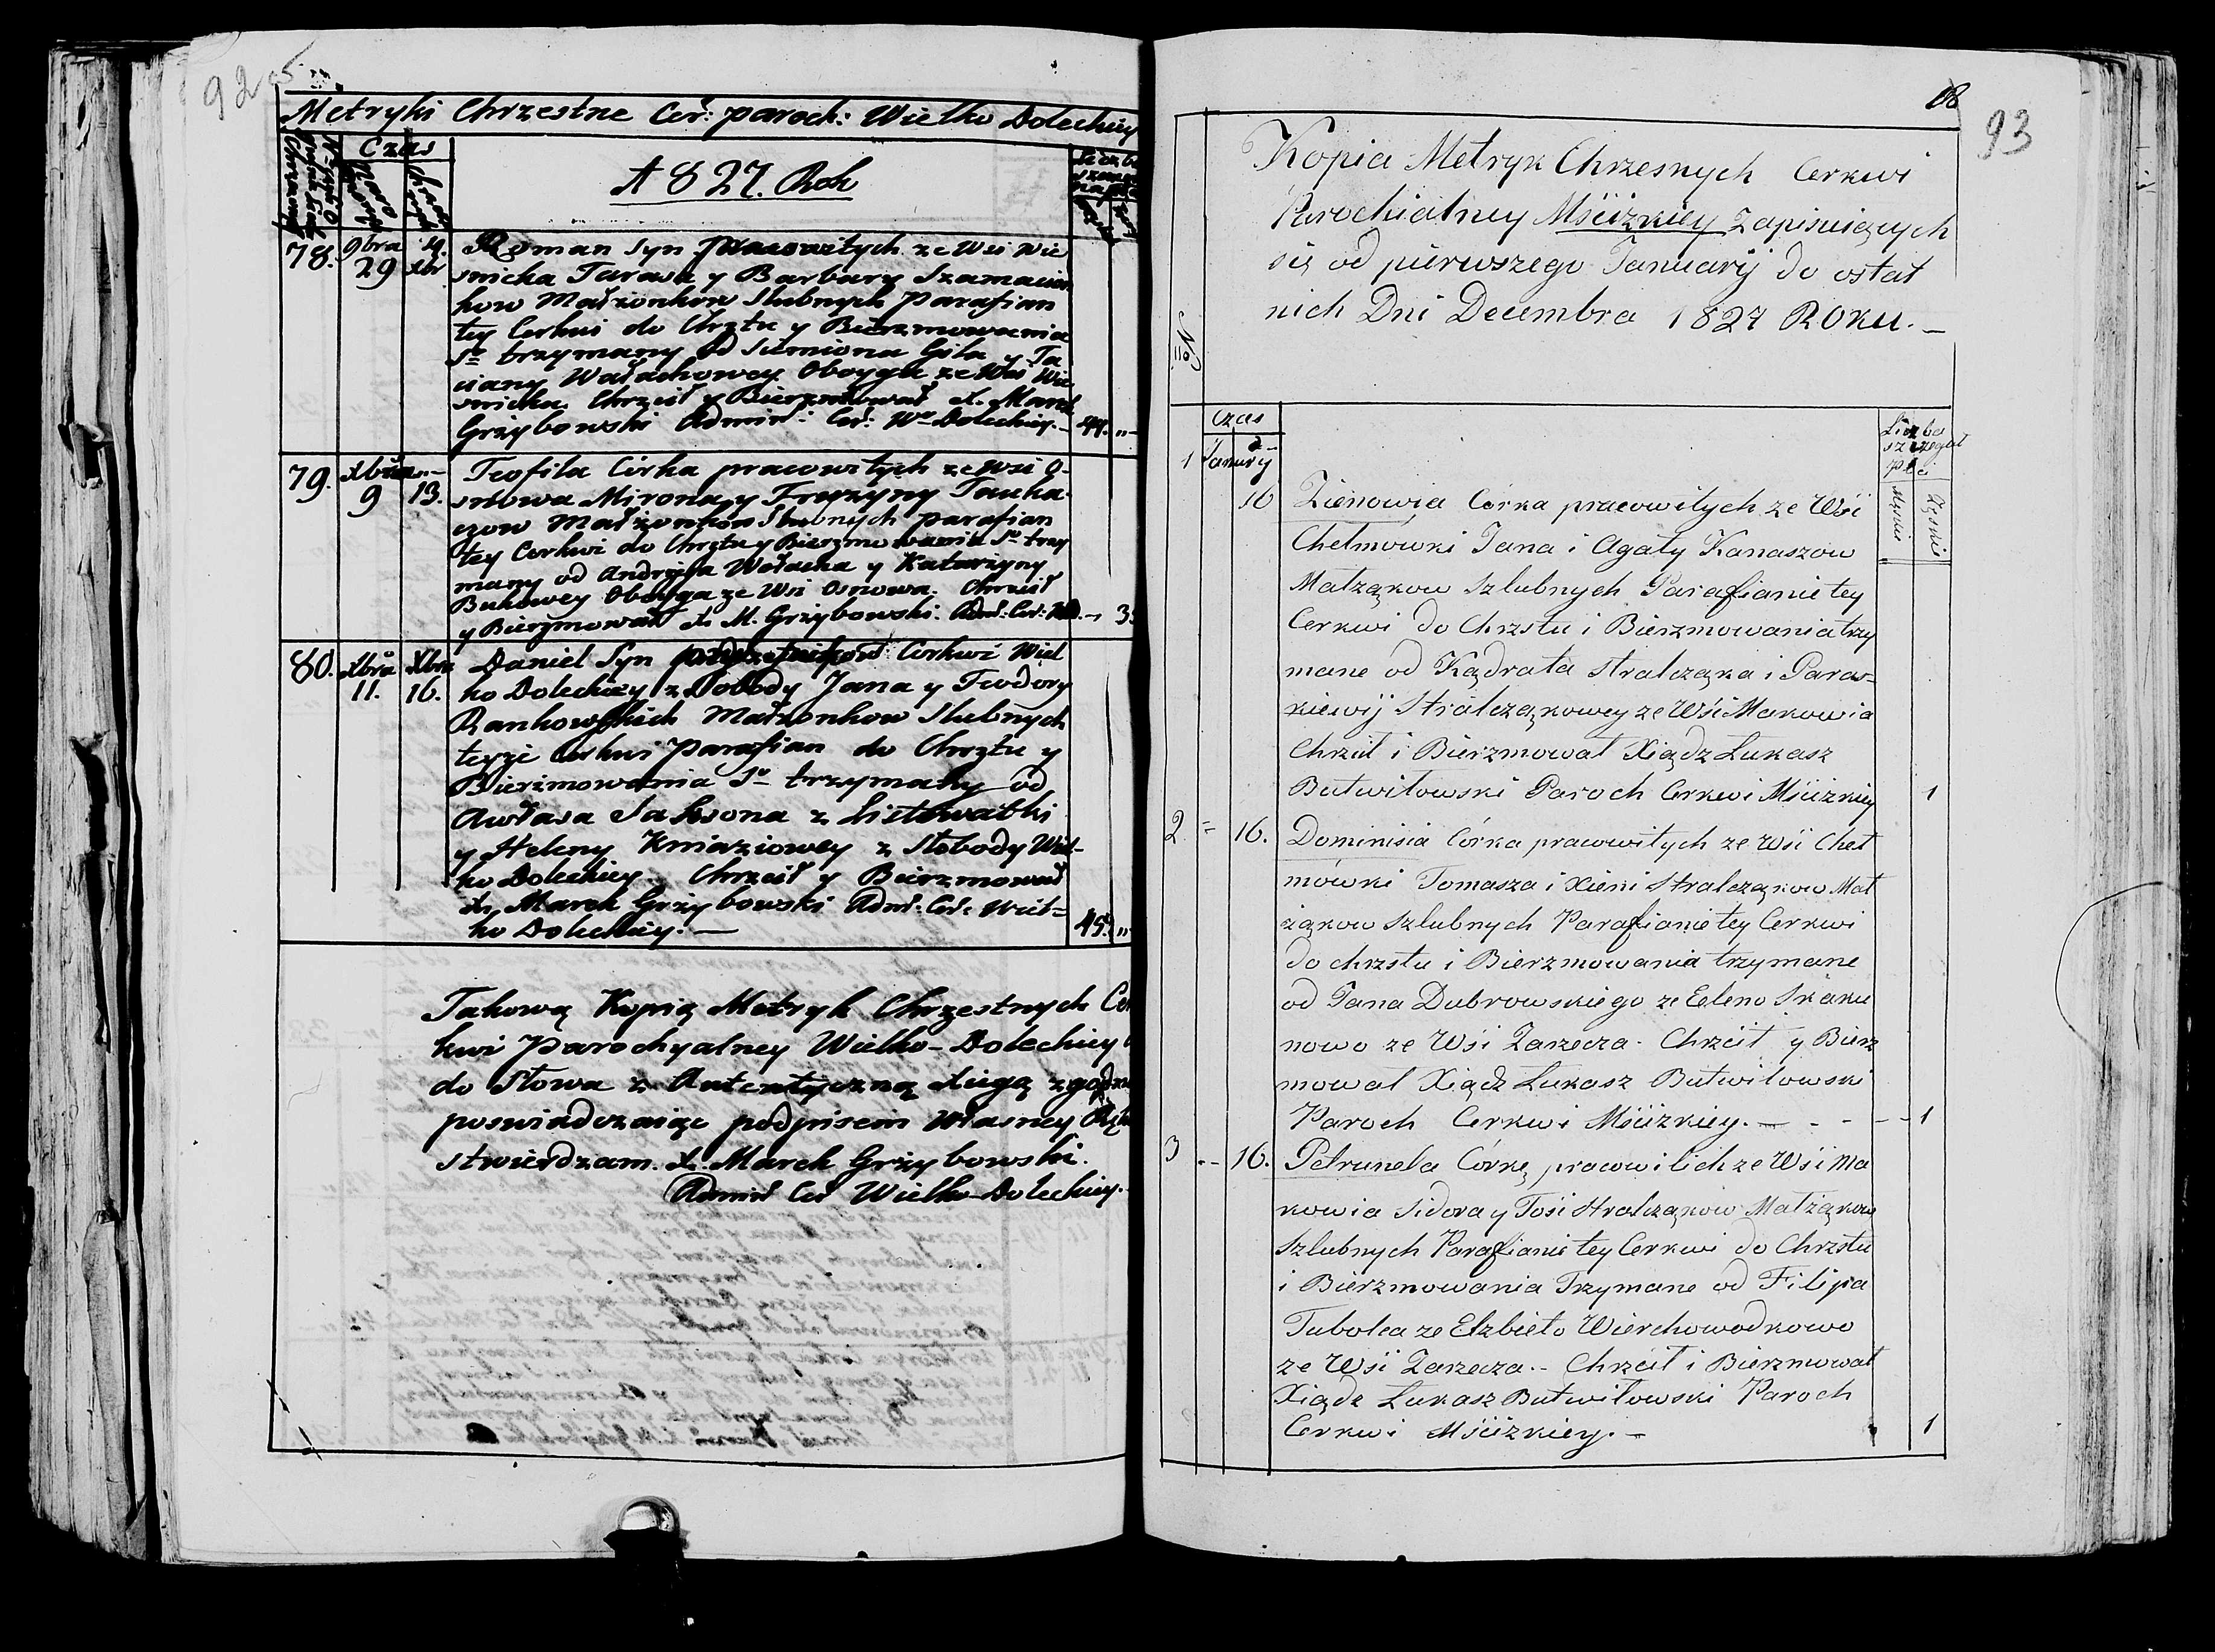 92
Metryki Chrzestne Cer: paroch: Wielko Doleckiey
Czas
1827. Rok
78. 9bra 29
Roman Syn pracowitych ze Wsi Wie
snicka Tarasa y Barbary Szamacion
kow Małżonkow Slubnych Parafian
tey Cerkwi do Chrztu y Bierzmowania
So trzymany od Siemiona Gila y Ta
ciany Wałachowey Oboyga ze Wsi Wie
snicka Chrzcił y Bierzmował X. Marek
Grzybowski Admin: Cer: Wo Doleckiey. 44. "
79. Xbra 9 13.
Teofila Córka pracowitych ze Wsi O-
snowa Mirona y Fruzyny Tauka-
czow Małżonkow Slubnych parafian
tey Cerkwi do Chrztu y Bierzmowania So trzy
many od Andrzeja Wałacha y Katarzyny
Bukowey Oboyga ze Wsi Osnowa. Chrzcił
y Bierzmował X. M. Grzybowski. Adm. Cer:
80. Xbra 11. Xbra 16.
Daniel Syn Cerkwi Wiel
ko Doleckiey z Słobody Jana y Teodory
Rankowskich Małżonkow Slubnych
teyże Cerkwi Parafian do Chrztu y
Bierzmowania So trzymany od
Awłasa Saksona z Listowatki
y Heleny Kniaziowey z Słobody Wiel-
ko Doleckiey. Chrzcił y Bierzmował
X. Marek Grzybowski Adm: Cer: Wiel=
ko Doleckiey. — 45. "
Takową Kopią Metryk Chrzestnych Cer
kwi Parochyalney Wielko-Doleckiey
do Słowa z Autentyczną Xięgą zgodn
poswiadczaiąc podpisem Własney Rę
stwierdzam. X. Marek Grzybowski.
Admin Cer Wielko-Doleckiey.
93
Kopia Metryk Chrzesnych Cerkwi
Parochialney Mścizkiey Zapisuiących
się od pierwszego Januarij do ostat
nich Dni Decembra 1827 ROKU. —
No
Czas
Liczba
szczegul
Płci
Męskiej
Żęskiej
1 Januarij
16 Zienowia Córka pracowitych ze Wśi
Chełmówki Jana i Agaty Kanaszow
Małząkow Szlubnych Parafianie tey
Cerkwi do Chrzstu i Bierzmowania trzy
mane od Kądrata Strałcząka i Paras-
kiewij Strałcząkowey ze Wśi Makowia
Chrzcił i Bierzmował Xiądz Łukasz
Butwiłowski Paroch Cerkwi Mścizkiey 1
2 = 16. Dominisia Córka pracowitych ze Wśi Cheł
mówki Tomasza i Xieni Strałcząkow Mał
żąkow Szlubnych Parafianie tey Cerkwi
do chrzstu i Bierzmowania trzymane
od Jana Dubrowskiego ze Eleno Skaku
nowo ze Wśi Zarzecza. Chrzcił y Bierz
mował Xiądz Łukasz Butwiłowski
Paroch Cerkwi Mścizkiey. — - - - 1
3 -- 16. Petrunela Córkę pracowitich ze Wśi Ma
kowia Sidora y Tośi Strałcząkow Małżąkow
Szlubnych Parafianie tey Cerkwi do Chrzstu
i Bierzmowania Trzymane od Filipa
Tubolca ze Elzbieto Wierchowodkowo
ze Wśi Zarzecza. - Chrzcił i Bierzmował
Xiądz Łukasz Butwiłowski Paroch
Cerkwi Mścizkiey. - 1